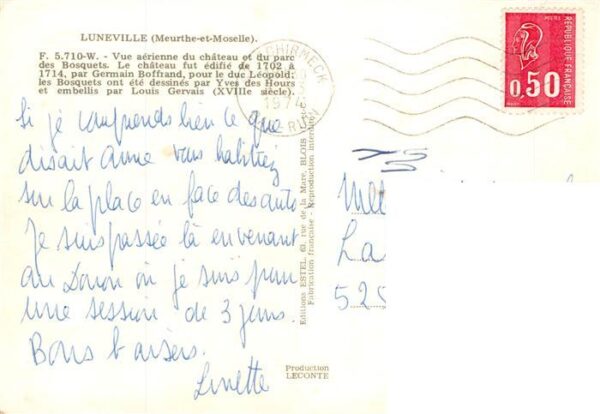 LUNEVILLE (Meurthe-et-Moselle).
F. 5.710-W. - Vue aérienne du château et du parc
des Bosquets. Le château fut édifié de 1702 à
1714, par Germain Boffrand, pour le duc Léopold;
les Bosquets ont été dessinés par Yves des Hours
et embellis par Louis Gervais (XVIIIe siècle).
Si je comprends bien ce que
disait Anne vous habitiez
sur la place en face des autos
Je suis passée là en venant
au Donon où je suis pour
une session de 3 jours.
Bons baisers.
Linette
Editions ESTEL, 63, rue de la Mare, BLOIS
Fabrication française - Reproduction interdite
Production
LECONTE
SCHIRMECK
RHIN
0,50
REPUBLIQUE FRANÇAISE
POSTES
La
525